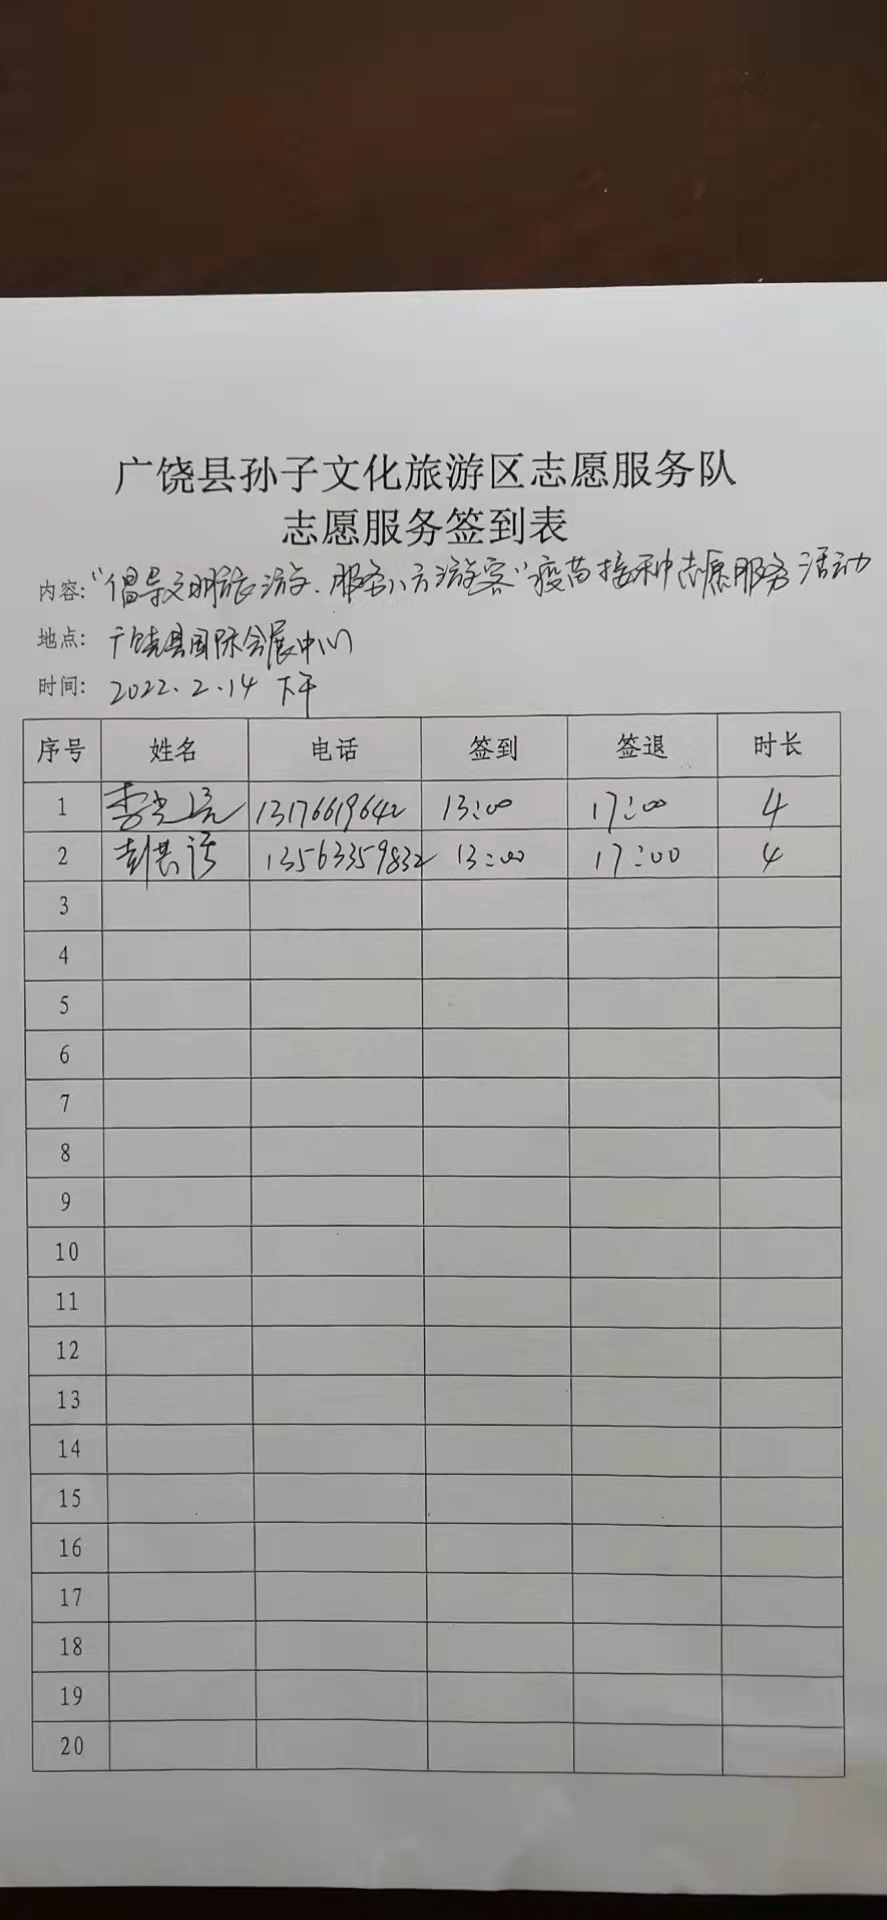 广饶县孙子文化旅游区志愿服务队
志愿服务签到表
内容:“倡导文明旅游.服务八方游客”疫苗接种志愿服务活动
地点: 广饶县国际会展中心
时间: 2022.2.14 下午
序号 姓名 电话 签到 签退 时长
1 李 13176619642 13:00 17:00 4
2 彭 13563359832 13:00 17:00 4
3
4
5
6
7
8
9
10
11
12
13
14
15
16
17
18
19
20